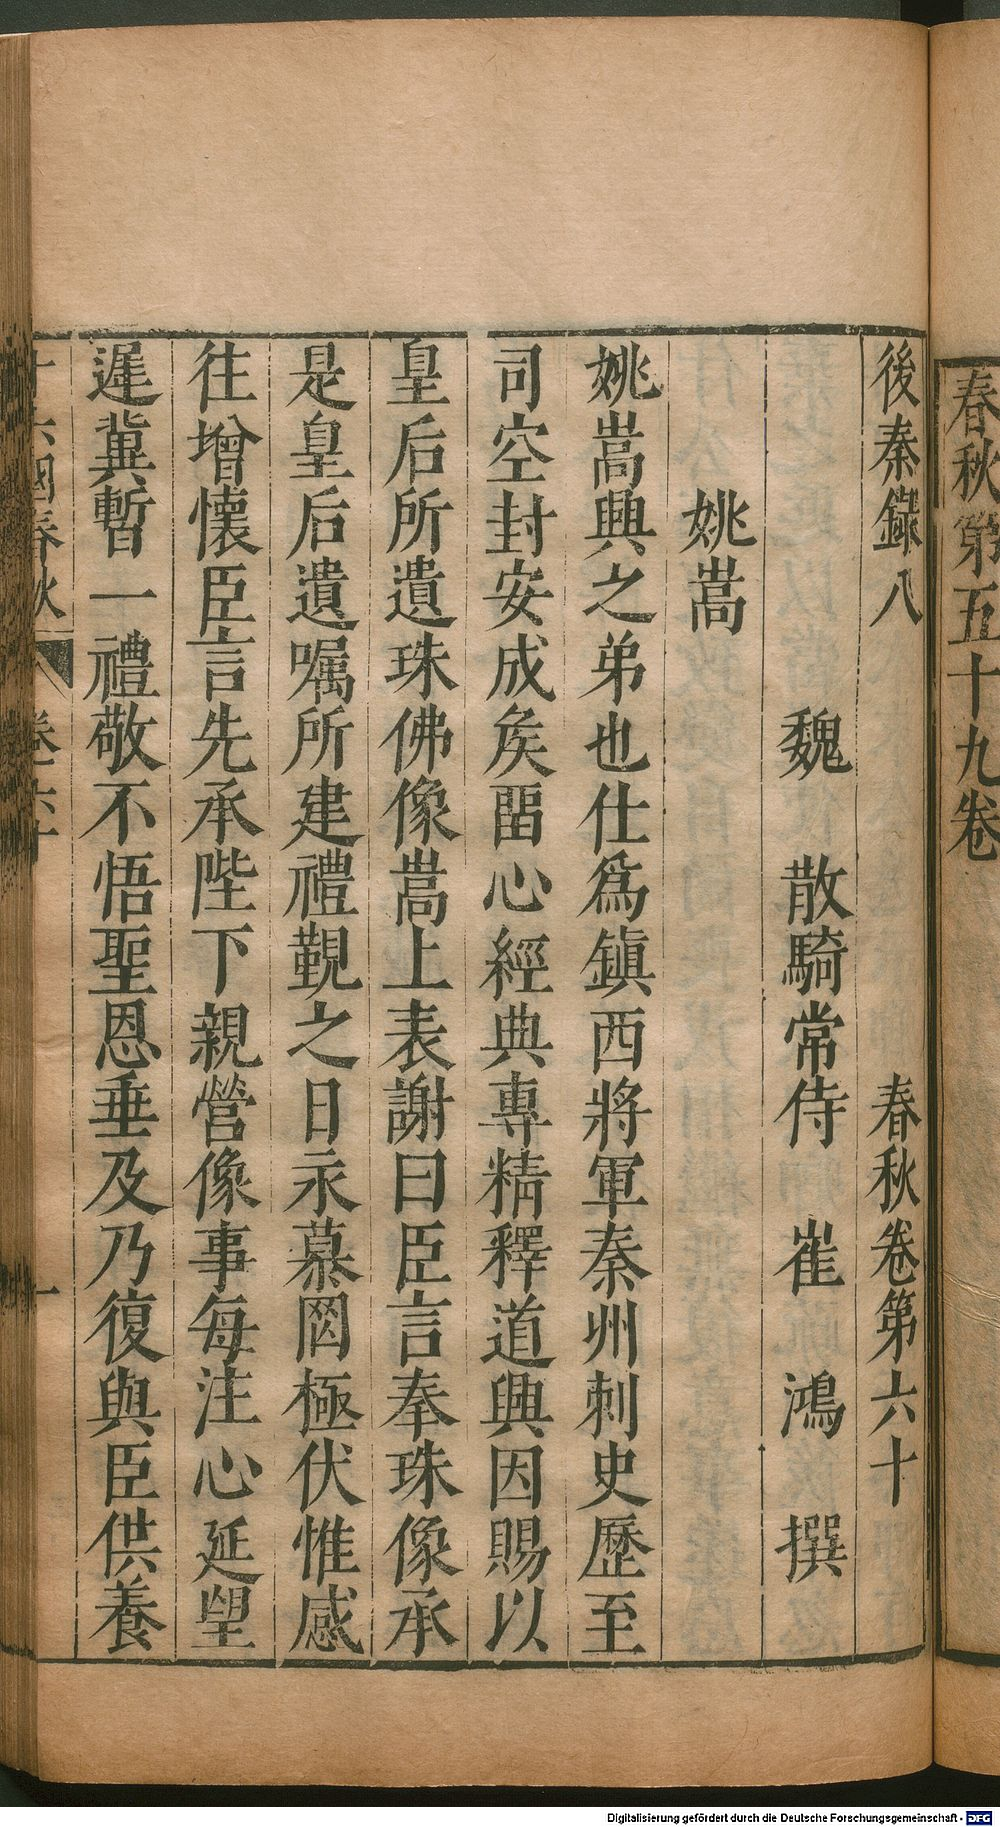 春秋第五十九卷
後秦錄八 春秋卷第六十
魏 散騎常侍 崔 鴻 撰
姚嵩
姚嵩興之弟也仕爲鎭西將軍秦州刺史歷至
司空封安成矦畱心經典專精釋道興因賜以
皇后所遺珠佛像嵩上表謝曰臣言奉珠像承
是皇后遺嘱所建禮覲之日永慕罔極伏惟感
往增懷臣言先承陛下親營像事每注心延望
遲冀暫一禮敬不悟聖恩垂及乃復與臣供養
十六國春秋 卷六十 一
Digitalisierung gefördert durch die Deutsche Forschungsgemeinschaft - DFG